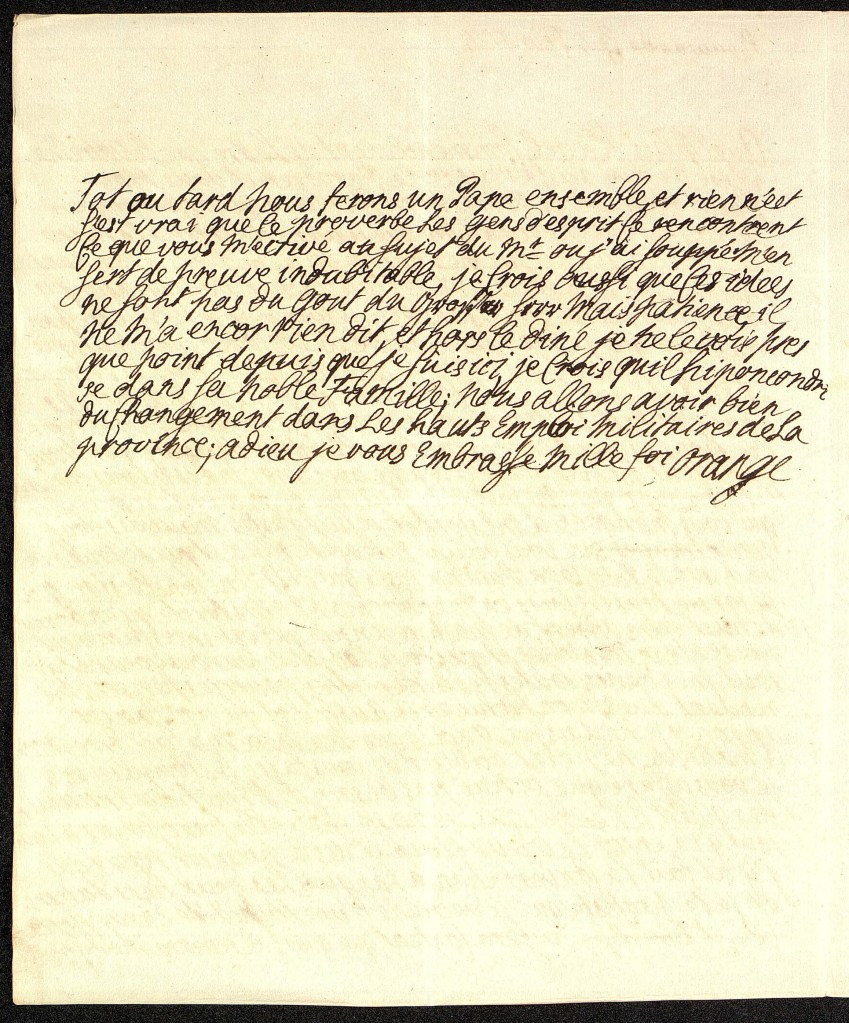 Tot ou tard nous ferons un Pape ensemble, et rien n'eet
s'est vrai que le proverbe Les gens d'esprit se rencontrent
Ce que vous m'ective au sujet du Mr ou j'ai souppé m'en
sert de preuve indubitable, je Crois aussi que Ces idees
ne sont pas du Gout du Mais patience, il
ne m'a encor rien dit, et hors le diné je ne le vois pres
que point depuis que je suis ici, je Crois qu'il hiponcondri
se dans sa noble Famille; Nous allons avoir bien
du Changement dans Les hauts Emploi militaires de La
province; adieu je vous Embrasse Mille foi Orange